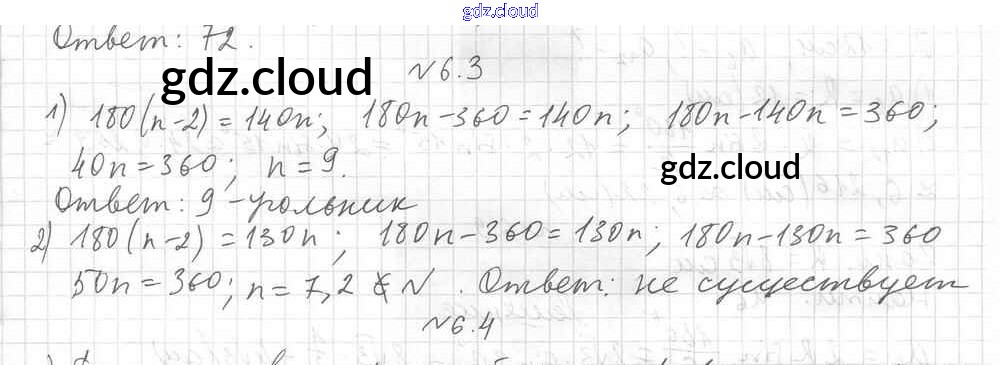 gdz.cloud
Ответ: 72.
gdz.cloud
№6.3
1) 180(n-2) = 140n; 180n-360=140n; 180n-140n=360;
40n=360; n=9.
gdz.cloud
Ответ: 9-угольник
2) 180(n-2) = 130n; 180n-360=130n; 180n-130n=360
50n=360; n=7,2 ∉ N. Ответ: не существует
№6.4